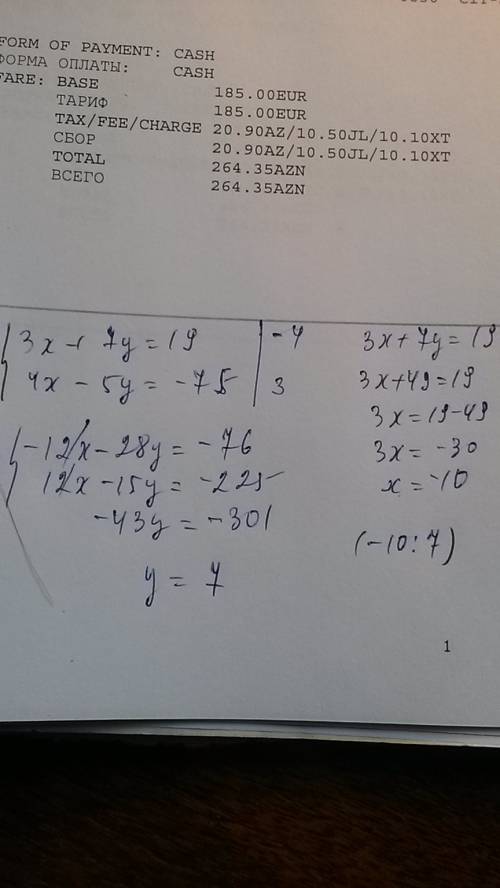 FORM OF PAYMENT: CASH
ФОРМА ОПЛАТЫ: CASH
FARE: BASE 185.00EUR
ТАРИФ 185.00EUR
TAX/FEE/CHARGE 20.90AZ/10.50JL/10.10XT
СБОР 20.90AZ/10.50JL/10.10XT
TOTAL 264.35AZN
ВСЕГО 264.35AZN
3x + 7y = 19 | -4
4x - 5y = -75 | 3
-12x - 28y = -76
12x - 15y = -225
-43y = -301
y = 7
3x + 7y = 19
3x + 49 = 19
3x = 19 - 49
3x = -30
x = -10
(-10: 7)
1